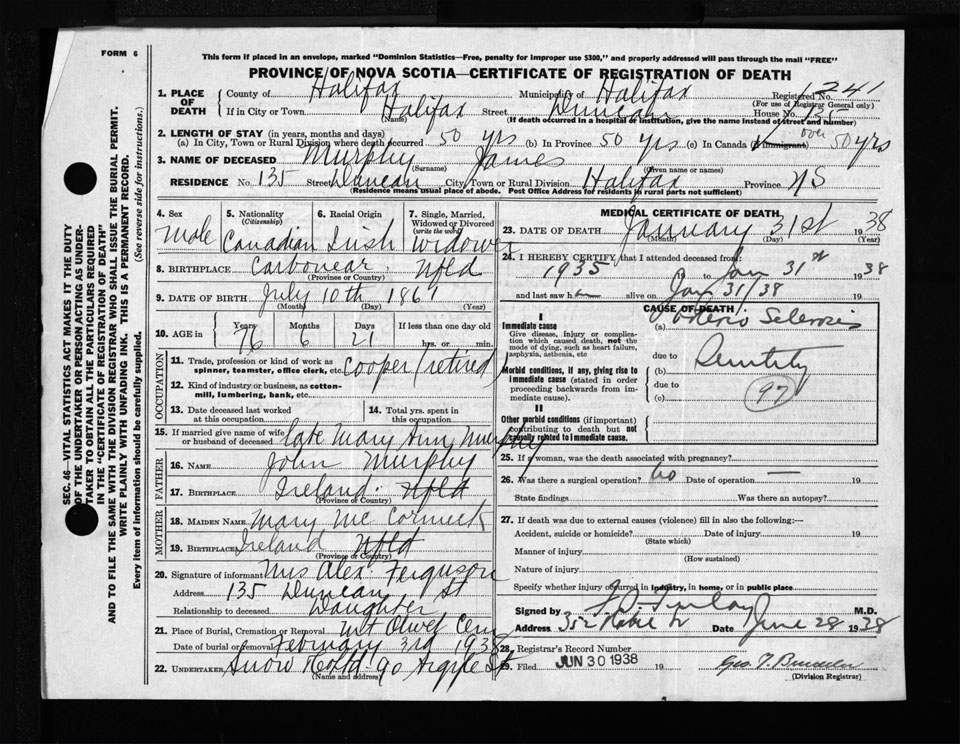 FORM 6
This form if placed in an envelope, marked "Dominion Statistics—Free, penalty for improper use $300," and properly addressed will pass through the mail "FREE"
PROVINCE OF NOVA SCOTIA—CERTIFICATE OF REGISTRATION OF DEATH
SEC. 46—VITAL STATISTICS ACT MAKES IT THE DUTY
OF THE UNDERTAKER OR PERSON ACTING AS UNDER-
TAKER TO OBTAIN ALL THE PARTICULARS REQUIRED
IN THE "CERTIFICATE OF REGISTRATION OF DEATH"
AND TO FILE THE SAME WITH THE DIVISION REGISTRAR WHO SHALL ISSUE THE BURIAL PERMIT.
WRITE PLAINLY WITH UNFADING INK. THIS IS A PERMANENT RECORD.
Every item of information should be carefully supplied. (See reverse side for instructions.)
1. PLACE OF DEATH County of Halifax Municipality of Halifax Registered No. 241
(For use of Registrar General only)
If in City or Town Halifax Street Duncan House No. 135
(Name) (If death occurred in a hospital or institution, give the name instead of street and number)
2. LENGTH OF STAY (in years, months and days)
(a) In City, Town or Rural Division where death occurred 50 yrs (b) In Province 50 yrs (c) In Canada (if immigrant) over 50 yrs
3. NAME OF DECEASED Murphy James
(Surname) (Given name or names)
RESIDENCE No. 135 Street Duncan City, Town or Rural Division Halifax Province NS
(Residence means usual place of abode. Post Office Address for residents in rural parts not sufficient)
4. Sex 5. Nationality (Citizenship) 6. Racial Origin 7. Single, Married, Widowed or Divorced (write the word)
Male Canadian Irish Widower
8. BIRTHPLACE Carbonear Nfld
(Province or Country)
9. DATE OF BIRTH July 10th 1861
(Month) (Day) (Year)
10. AGE in Years Months Days If less than one day
76 6 21 hrs. or min.
OCCUPATION
11. Trade, profession or kind of work as spinner, teamster, office clerk, etc. Cooper (retired)
12. Kind of industry or business, as cotton-mill, lumbering, bank, etc.
13. Date deceased last worked at this occupation 14. Total yrs. spent in this occupation
15. If married give name of wife or husband of deceased late Mary Ann Murphy
FATHER
16. NAME John Murphy
17. BIRTHPLACE Ireland Nfld
(Province or Country)
MOTHER
18. MAIDEN NAME Mary McCormick
19. BIRTHPLACE Ireland Nfld
(Province or Country)
20. Signature of informant Mrs Alex Ferguson
Address 135 Duncan St
Relationship to deceased Daughter
21. Place of Burial, Cremation or Removal Mt Olivet Cem
Date of burial or removal February 3rd 1938
22. UNDERTAKER Snow 90 Argyle St
(Name and address)
MEDICAL CERTIFICATE OF DEATH
23. DATE OF DEATH January 31st 1938
(Month) (Day) (Year)
24. I HEREBY CERTIFY that I attended deceased from:
1935 to Jan 31st 1938
and last saw h alive on Jan 31/38 19
CAUSE OF DEATH
I
Immediate cause
Give disease, injury or complication which caused death, not the mode of dying, such as heart failure, asphyxia, asthenia, etc
(a) Arterio Sclerosis
due to
Morbid conditions, if any, giving rise to immediate cause (stated in order proceeding backwards from immediate cause).
(b)
due to
(c)
97
II
Other morbid conditions (if important) contributing to death but not causally related to immediate cause.
25. If a woman, was the death associated with pregnancy?
26. Was there a surgical operation? No Date of operation — 19
State findings Was there an autopsy?
27. If death was due to external causes (violence) fill in also the following:—
Accident, suicide or homicide? Date of injury 19
(State which)
Manner of injury
(How sustained)
Nature of injury
Specify whether injury occurred in industry, in home, or in public place
Signed by M.D.
Address Date June 28 1938
28. Registrar's Record Number
29. Filed JUN 30 1938 19
(Division Registrar)